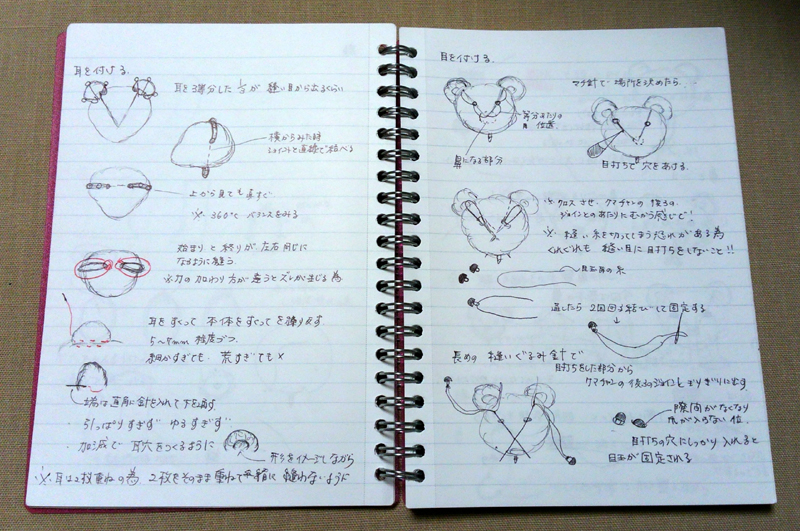 耳を付ける
耳を3等分した1/3が縫い目から出るくらい
横からみた時
ジョイントと直線で結べる
上から見ても真すぐ
※ 360°で バランスをみる
始まりと終りが左右同じに
なるように縫う
※力の加わり方が違うとズレが生じる為
耳をすくって 本体をすくって を繰り返す
5〜7mm 程度づつ
細かすぎても、荒すぎても×
端は直角に針を入れて下を通す
引っぱりすぎず ゆるすぎず
加減で 耳穴をつくるように
形をイメージしながら
※耳は2枚重ねの為、2枚をそのまま重ねて平縫に縫わないように
耳を付ける
マチ針で 場所を決めたら
位置
鼻になる部分
目打ちで穴をあける
※クロスさせ、クマチャンの後ろの
ジョイントのあたりにむかう感じで!
※縫い糸を切ってしまう恐れがある為
くれぐれも 縫い目に目打ちをしないこと!!
の糸
通したら 2回固結びして固定する
長めの 縫いぐるみ針で
目打ちをした部分から
クマチャンの後ろのジョイントギリギリに出す
隙間がなくなり
が入らない位
目打ちの穴にしっかり入れると
目玉が固定される